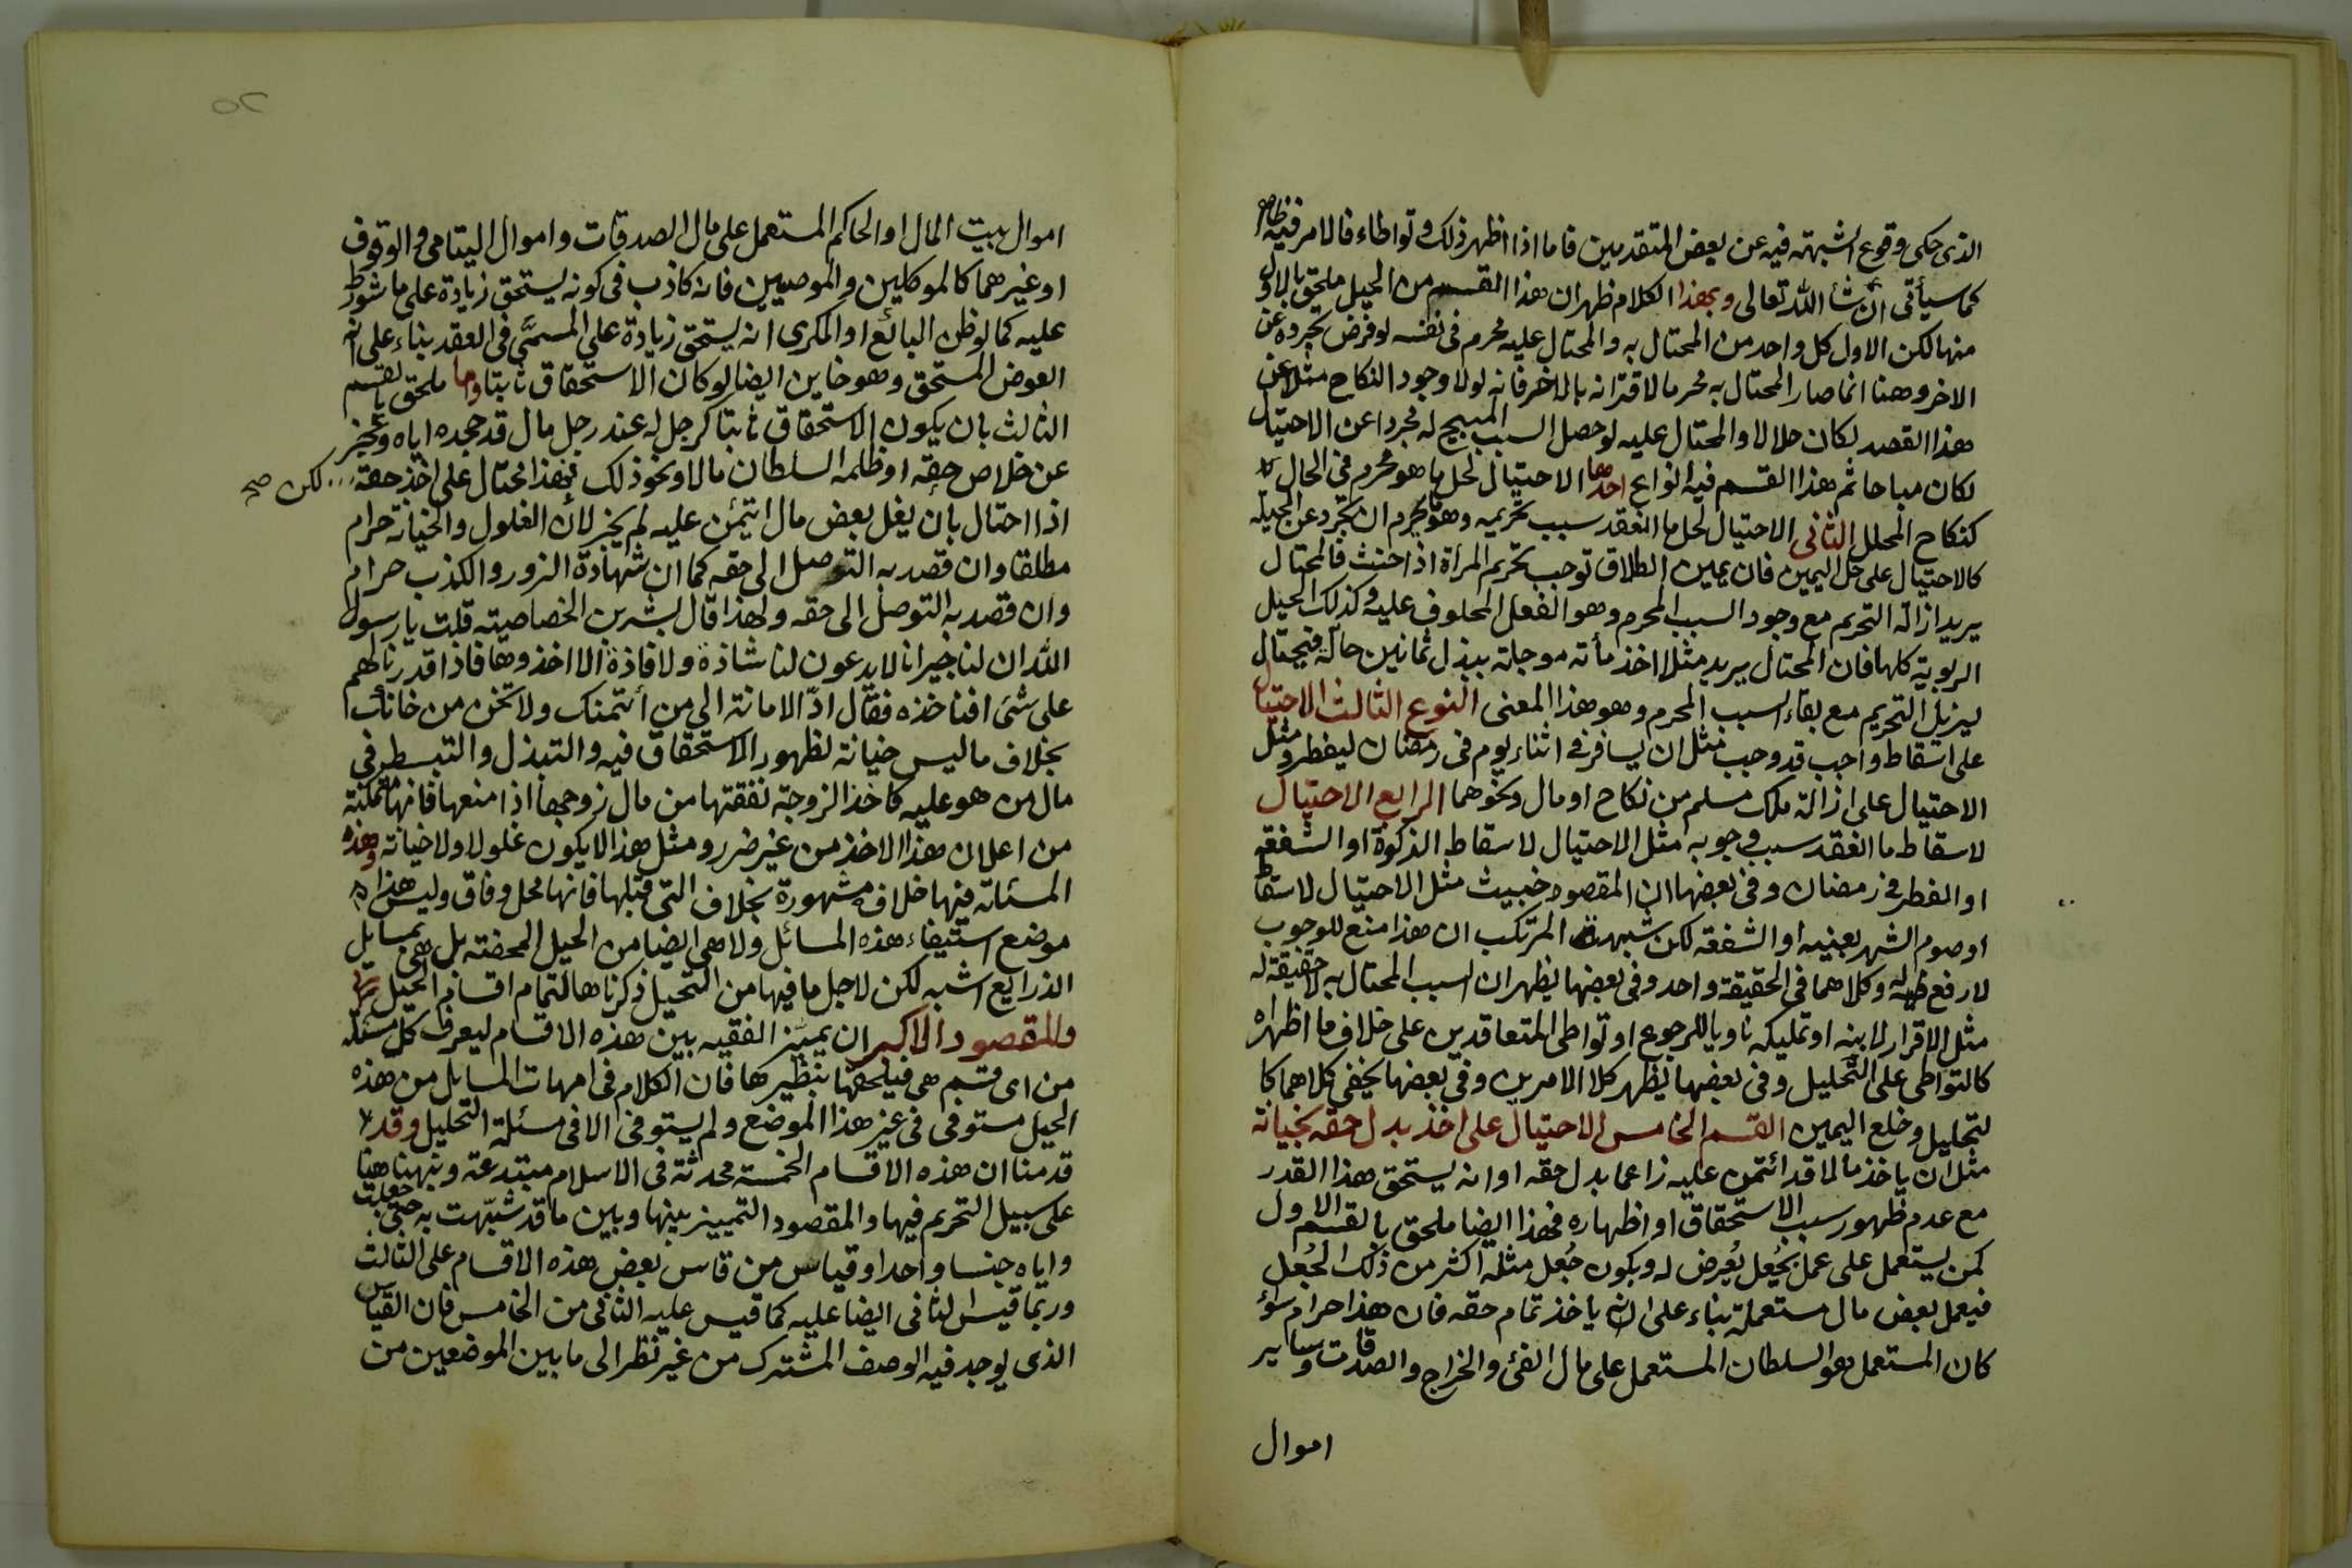 الذى حكى وقوع الشبهة فيه عن بعض المتقدمين فاما اذا اظهر ذلك وتواطاء فالامر فيه ظاهر
كما سيأتى ان شأ الله تعالى وبهذا الكلام ظهر ان هذا القسم من الحيل ملحق بالاول
منها لكن الاول كل واحد من المحتال به والمحتال عليه محرم فى نفسه لو فرض تجرده عن
الاخر وهنا انما صار المحتال به محرما لاقترانه بالاخر فانه لولا وجود النكاح مثلا عن
هذا القصد لكان حلالا والمحتال عليه لو حصل السبب المبيح له مجردا عن الاحتيال
لكان مباحا ثم هذا القسم فيه انواع احدها الاحتيال لحل ما هو محرم فى الحال
كنكاح المحلل الثانى الاحتيال لحل ما انعقد سبب تحريمه وهو ما يحرم ان تجرد عن الحيلة
كالاحتيال على حل اليمين فان يمين الطلاق توجب تحريم المرأة اذا حنث فالمحتال
يريد ازالة التحريم مع وجود السبب المحرم وهو الفعل المحلوف عليه وكذلك الحيل
الربوية كلها فان المحتال يريد مثلا اخذ مأته موجلة ببذل ثمانين حالة فيحتال
ليزيل التحريم مع بقاء السبب المحرم وهو هذا المعنى النوع الثالث الاحتيال
على اسقاط واجب قد وجب مثل ان يسافر فى اثناء يوم فى رمضان ليفطر ومثل
الاحتيال على ازالة ملك مسلم من نكاح او مال ونحوهما الرابع الاحتيال
لاسقاط ما انعقد سبب وجوبه مثل الاحتيال لاسقاط الذكوة او الشفعة
او الفطر فى رمضان وفى بعضها ان المقصود خبيث مثل الاحتيال لاسقاط
او صوم الشهر بعينه او الشفعة لكن شبهة المرتكب ان هذا منع للوجوب
لا رفع له وكلاهما فى الحقيقة واحد وفى بعضها يظهر ان السبب المحتال به لا حقيقة له
مثل الاقرار لابنه او تمليكه ناويا للرجوع او تواطى المتعاقدين على خلاف ما اظهراه
كالتواطى على التحليل وفى بعضها يظهر كلا الامرين وفى بعضها يخفى كلاهما كا
لتحليل وخلع اليمين القسم الخامس الاحتيال على اخذ بدل حقه بخيانة
مثل ان ياخذ مالا قد ائتمن عليه زاعما بدل حقه او انه يستحق هذا القدر
مع عدم ظهور سبب الاستحقاق او اظهاره فهذا ايضا ملحق بالقسم الاول
كمن يستعمل على عمل بجُعل يُعرض له ويكون جُعل مثله اكثر من ذلك الجُعل
فيعمل بعض مال مستعملة بناء على انه ياخذ تمام حقه فان هذا حرام سؤ
كان المستعمل هو السلطان المستعمل على مال الفئ والخراج والصدقات وساير
اموال
اموال بيت المال او الحاكم المستعمل على مال الصدقات واموال اليتامى والوقوف
او غيرهما كالموكلين والموصيين فانه كاذب فى كونه يستحق زيادة على ما شورط
عليه كما لو ظن البائع او المكرى انه يستحق زيادة على المسمَّى فى العقد بناء على انه
العوض المستحق وهو خاين ايضا لو كان الاستحقاق ثابتا واما ملحق بالقسم
الثالث بان يكون الاستحقاق ثابتا كرجل له عند رجل مال قد جحده اياه وعجز
عن خلاص حقه او ظلمه السلطان مالا ونحو ذلك فهذا محتال على اخذ حقه
لكن صح
اذا احتال بان يغل بعض مال ائتمن عليه لم يجز لان الغلول والخيانة حرام
مطلقا وان قصد به التوصل الى حقه كما ان شهادة الزور والكذب حرام
وان قصد به التوصل الى حقه ولهذا قال بشر بن الخصاصيته قلت يا رسول
الله ان لنا جيرانا لا يدعون لنا شاذة ولا فاذة الا اخذوها فاذا قدرنا لهم
على شئ افناخذه فقال ادّ الامانة الى من أئتمنك ولا تخن من خانك
بخلاف ما ليس خيانة لظهور الاستحقاق فيه والتبذل والتبسط فى
مال من هو عليه كاخذ الزوجة نفقتها من مال زوجها اذا منعها فانها متمكنة
من اعلان هذا الاخذ من غير ضرر ومثل هذا لا يكون غلولا ولا خيانة وهذه
المسئلة فيها خلاف مشهورة بخلاف التى قبلها فانها محل وفاق وليس هذا
موضع استيفاء هذه المسائل ولا هى ايضا من الحيل المحضته بل هى بمسايل
الذرايع اشبه لكن لاجل ما فيها من التحيل ذكرناها لتمام اقسام الحيل
والمقصود الاكبر ان يميّز الفقيه بين هذه الاقسام ليعرف كل مسئلة
من اى قسم هى فيلحقها بنظيرها فان الكلام فى امهات المسايل من هذه
الحيل مستوفى فى غير هذا الموضع ولم يستوفى الا فى مسئلة التحليل وقد
قدمنا ان هذه الاقسام الخمسة محدثة فى الاسلام مبتدعة ونبهنا هنا
على سبيل التحريم فيها والمقصود التمييز بينها وبين ما قد شبّهت به حتى جعلت
واياه جنسا واحدا وقياس من قاس بعض هذه الاقسام على الثالث
وربما قيس الثانى ايضا عليه كما قيس عليه الثانى من الخامس فان القياس
الذى يوجد فيه الوصف المشترك من غير نظر الى ما بين الموضعين من